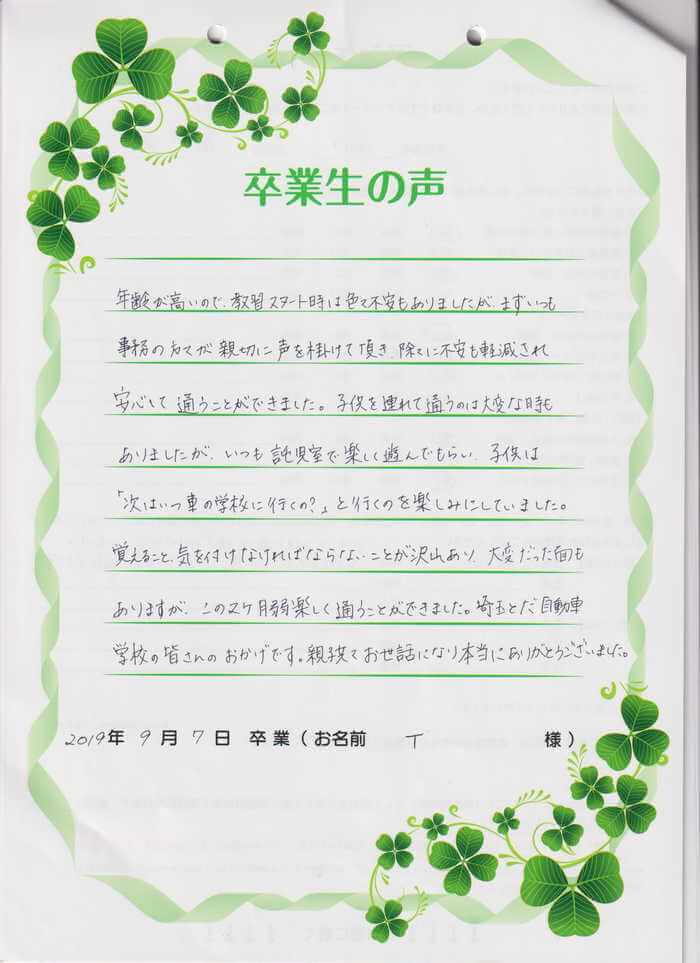 卒業生の声
年齢が高いので、教習スタート時は色々不安もありましたが、まずいつも
事務の方々が親切に声を掛けて頂き、除々に不安も軽減され
安心して通うことができました。子供を連れて通うのは大変な時も
ありましたが、いつも託児室で楽しく遊んでもらい、子供は
「次はいつ車の学校に行くの?」と行くのを楽しみにしていました。
覚えること、気を付けなければならないことが沢山あり、大変だった面も
ありますが、この2ヶ月弱楽しく通うことができました。埼玉とだ自動車
学校の皆さんのおかげです。親子共々お世話になり本当にありがとうございました。
2019年 9月 7日 卒業(お名前 T 様)